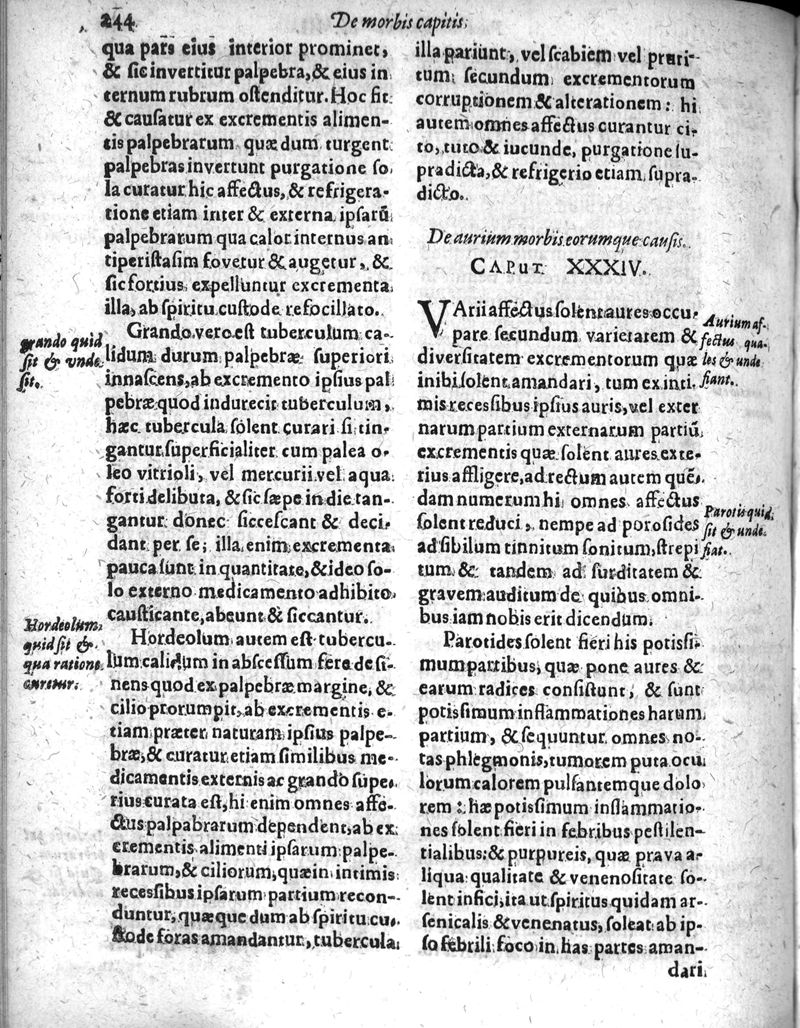 244
De morbis capitis.
qua pars eius interior prominet,
& sic invertitur palpebra, & eius in
ternum rubrum ostenditur. Hoc fit
& causatur ex excrementis alimen-
tis palpebrarum quæ dum turgent
palpebras invertunt purgatione so
la curatur hic affectus, & refrigera-
tione etiam inter & externa ipsarū
palpebrarum qua calor internus an
tiperistasim fovetur & augetur, &
sic fortius expelluntur excrementa
illa, ab spiritu custode refocillato.
grando quid
sit & vnde
sit.
Grando vero est tuberculum ca-
lidum durum palpebræ superiori
innascens, ab excremento ipsius pal
pebræ quod indurecit tuberculum,
hæc tubercula solent curari si tin-
gantur superficialiter cum palea o-
leo vitrioli, vel mercurii vel aqua
forti delibuta, & sic sæpe in die tan-
gantur donec siccescant & deci-
dant per se; illa enim excrementa
pauca sunt in quantitate, & ideo so-
lo externo medicamento adhibito
caustticante, abeunt & siccantur.
Hordeolum
quid sit &
qua ratione
curetur.
Hordeolum autem est tubercu-
lum calidum in abscessum fere desi-
nens quod ex palpebræ margine, &
cilio prorumpit, ab excrementis e-
tiam præter naturam ipsius palpe-
bræ, & curatur etiam similibus me-
dicamentis externis ac grando supe-
rius curata est, hi enim omnes affe-
ctus palpabrarum dependent, ab ex
crementis alimenti ipsarum palpe-
brarum, & ciliorum, quæ in intimis
recessibus ipsarum partium recon-
duntur, quæque dum ab spiritu cu-
stode foras amandantur, tubercula
illa pariunt, vel scabiem vel pruri-
tum secundum excrementorum
corruptionem & alterationem: hi
autem omnes affectus curantur ci-
to, tuto & iucunde, purgatione su-
pradicta, & refrigerio etiam supra-
dicto.
De aurium morbis eorumque causis.
CAPUT XXXIV.
VArii affectus solent aures occu
pare secundum varietatem &
diversitatem excrementorum quæ
inibi solent amandari, tum ex inti-
mis recessibus ipsius auris, vel exter
narum partium externarum partiū
excrementis quæ solent aures exte-
rius affligere, ad rectum autem quē-
dam numerum hi omnes affectus
solent reduci, nempe ad porosides
ad sibilum tinnitum sonitum, strepi
tum & tandem ad surditatem &
gravem auditum de quibus omni-
bus iam nobis erit dicendum.
Aurium af-
fectus qua-
les & unde
fiant.
Parotis quid
sit & unde
fiat.
Parotides solent fieri his potissi-
mum partibus, quæ pone aures &
earum radices consistunt, & sunt
potissimum inflammationes harum
partium, & sequuntur omnes no-
tas phlegmonis, tumorem puta ocu
lorum calorem pulsantemque dolo
rem: hæ potissimum inflammatio-
nes solent fieri in febribus pestilen-
tialibus: & purpureis, quæ prava a-
liqua qualitate & venenositate so-
lent infici, ita ut spiritus quidam ar-
senicalis & venenatus, soleat ab ip-
so febrili foco in has partes aman-
dari